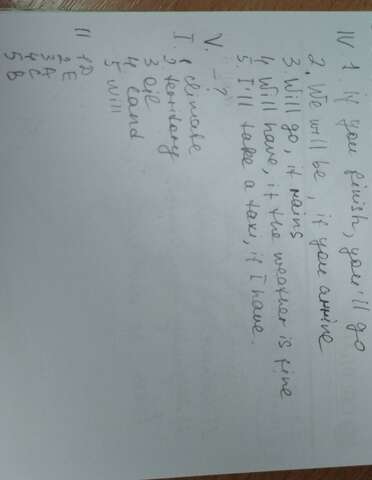 IV 1. if you finish, you'll go
2. We will be, if you arrive
3. Will go, if rains
4 Will have, if the weather is fine
5. I'll take a taxi, if I have.
V. – ?
I. 1 climate
2 territory
3 oil
4 land
5 will
II 1D
2. E
3 A
4 C
5 B